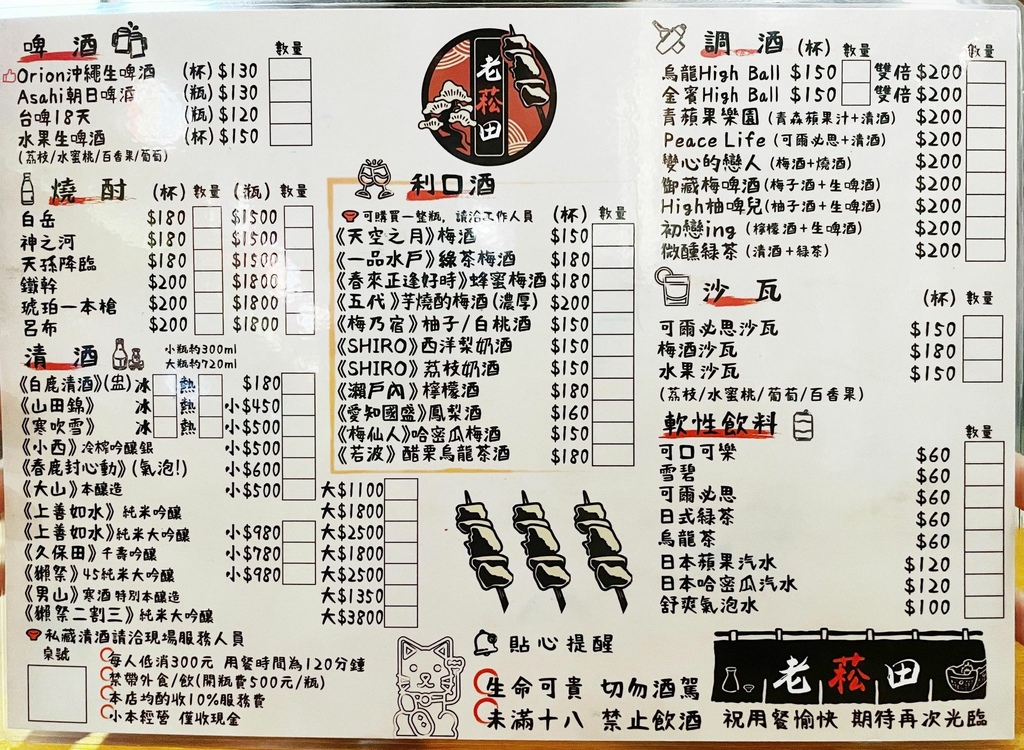 啤 酒 數量
Orion沖繩生啤酒 (杯) $130
Asahi朝日啤酒 (瓶) $130
台啤18天 (瓶) $120
水果生啤酒 (杯) $150
(荔枝/水蜜桃/百香果/葡萄)
燒 酎 (杯) 數量 (瓶) 數量
白岳 $180 $1500
神之河 $180 $1500
天孫降臨 $180 $1500
鐵幹 $200 $1800
琥珀一本槍 $200 $1800
呂布 $200 $1800
清 酒 小瓶約300ml
大瓶約720ml
《白鹿清酒》(盅) 冰 熱 $180
《山田錦》 冰 熱 小$450
《寒吹雪》 冰 熱 小$500
《小西》冷榨吟釀銀 小$500
《春鹿封心動》(氣泡!) 小$600
《大山》本釀造 小$500 大$1100
《上善如水》純米吟釀 大$1800
《上善如水》純米大吟釀 小$980 大$2500
《久保田》千壽吟釀 小$780 大$1800
《獺祭》45純米大吟釀 小$980 大$2500
《男山》寒酒 特別本釀造 大$1350
《獺祭二割三》純米大吟釀 大$3800
私藏清酒請洽現場服務人員
桌號
每人低消300元 用餐時間為120分鐘
禁帶外食/飲(開瓶費500元/瓶)
本店均酌收10%服務費
小本經營 僅收現金
老菘田
利口酒
可購買一整瓶, 請洽工作人員 (杯) 數量
《天空之月》梅酒 $150
《一品水戶》綠茶梅酒 $180
《春來正逢好時》蜂蜜梅酒 $180
《五代》芋燒酌梅酒(濃厚) $200
《梅乃宿》柚子/白桃酒 $150
《SHIRO》西洋梨奶酒 $150
《SHIRO》荔枝奶酒 $150
《瀨戶內》檸檬酒 $180
《愛知國盛》鳳梨酒 $160
《梅仙人》哈密瓜梅酒 $150
《若波》醋栗烏龍茶酒 $180
調 酒 (杯) 數量 數量
烏龍High Ball $150 雙倍 $200
金賓High Ball $150 雙倍 $200
青蘋果樂園 (青森蘋果汁+清酒) $200
Peace Life (可爾必思+清酒) $200
變心的戀人 (梅酒+燒酒) $200
御藏梅啤酒 (梅子酒+生啤酒) $200
High柚啤兒 (柚子酒+生啤酒) $200
初戀ing (檸檬酒+生啤酒) $200
微醺綠茶 (清酒+綠茶) $200
沙 瓦 (杯) 數量
可爾必思沙瓦 $150
梅酒沙瓦 $180
水果沙瓦 $150
(荔枝/水蜜桃/葡萄/百香果)
軟性飲料 數量
可口可樂 $60
雪碧 $60
可爾必思 $60
日式綠茶 $60
烏龍茶 $60
日本蘋果汽水 $120
日本哈密瓜汽水 $120
舒爽氣泡水 $100
貼心提醒
生命可貴 切勿酒駕
未滿十八 禁止飲酒
老菘田
祝用餐愉快 期待再次光臨